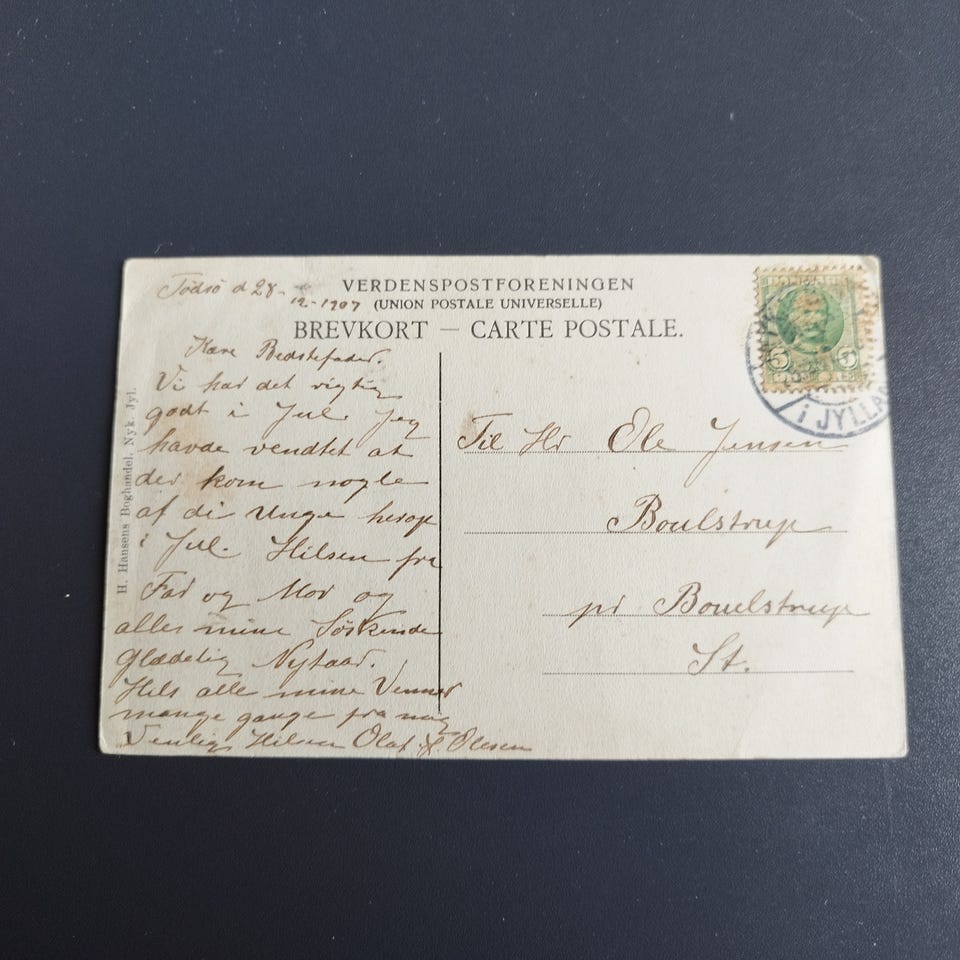 Tødsø d 28-
12-1907
VERDENSPOSTFORENINGEN
(UNION POSTALE UNIVERSELLE)
BREVKORT — CARTE POSTALE.
H. Hansens Boghandel. Nyk. Jyl.
Kære Bedstefader.
Vi har det rigtig
godt i Jul. Jeg
havde vendtet at
der kom nogle
af di Unge herop
i Jul. Hilsen fra
Far og Mor og
alle mine Søskende
Glædelig Nytaar.
Hils alle mine Venner
mange gange fra mig
Venlig Hilsen Olaf Olesen
5
DANMARK
i JYLLA
Til Hr Ole Jensen
Boulstrup
pr Boulstrup
St.